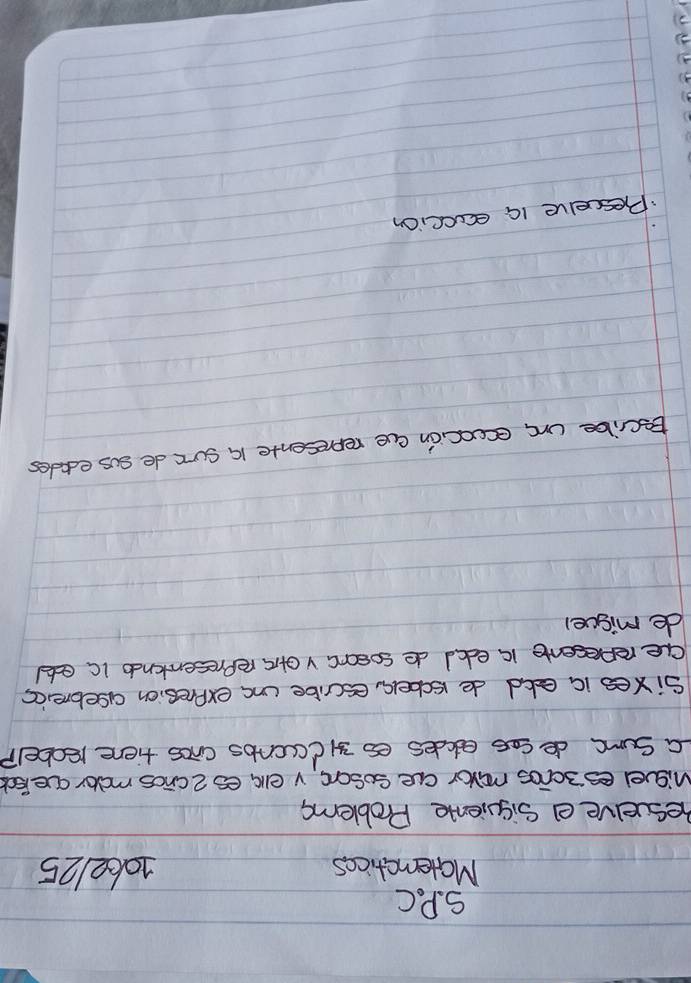 S.P.C
Matematicas 10/02/25
Resuelve el siguiente Problema
Miguel es 3 años mayor que Susana, y ella es 2 años mayor que
La suma de sus edades es 31 ¿Cuantos años tiene Isabel?
Si x es la edad de Isabela, escribe una expresion algebraica
que represente la edad de susana y otra representando la edad
de miguel
Escribe una ecuación que represente la suma de sus edades
Resuelve la ecuacion